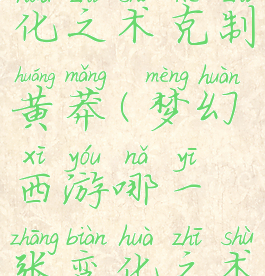 化之术克制
huáng mǎng mèng huàn
黄莽(梦幻
xī yóu nǎ yī
西游哪一
zhāng biàn huà zhī shù
张变化之术